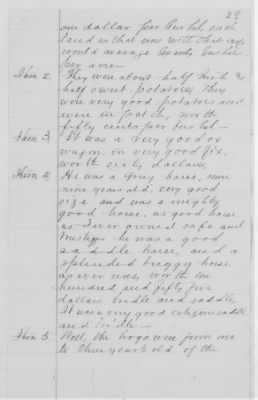 29
one dollar per bushel, such
land as that was with that crop
would average twenty bushels
per acre.
Item 2. They were about half Irish &
half sweet potatoes, they
were very good potatoes and
were in patch, worth
fifty cents per bushel.
Item 3. It was a very good
wagon, in very good fix,
worth sixty dollars.
Item 4. He was a grey horse, some
nine years old, very good
size and was a mighty
good horse, as good horse
as I ever owned safe and
he was a good
saddle horse, and a
splendid buggy horse
as ever was, worth one
hundred and fifty five
dollars bridle and saddle
It was a very good citizens saddle
and bridle.
Item 5. Well, the hogs were from one
to three years old of the